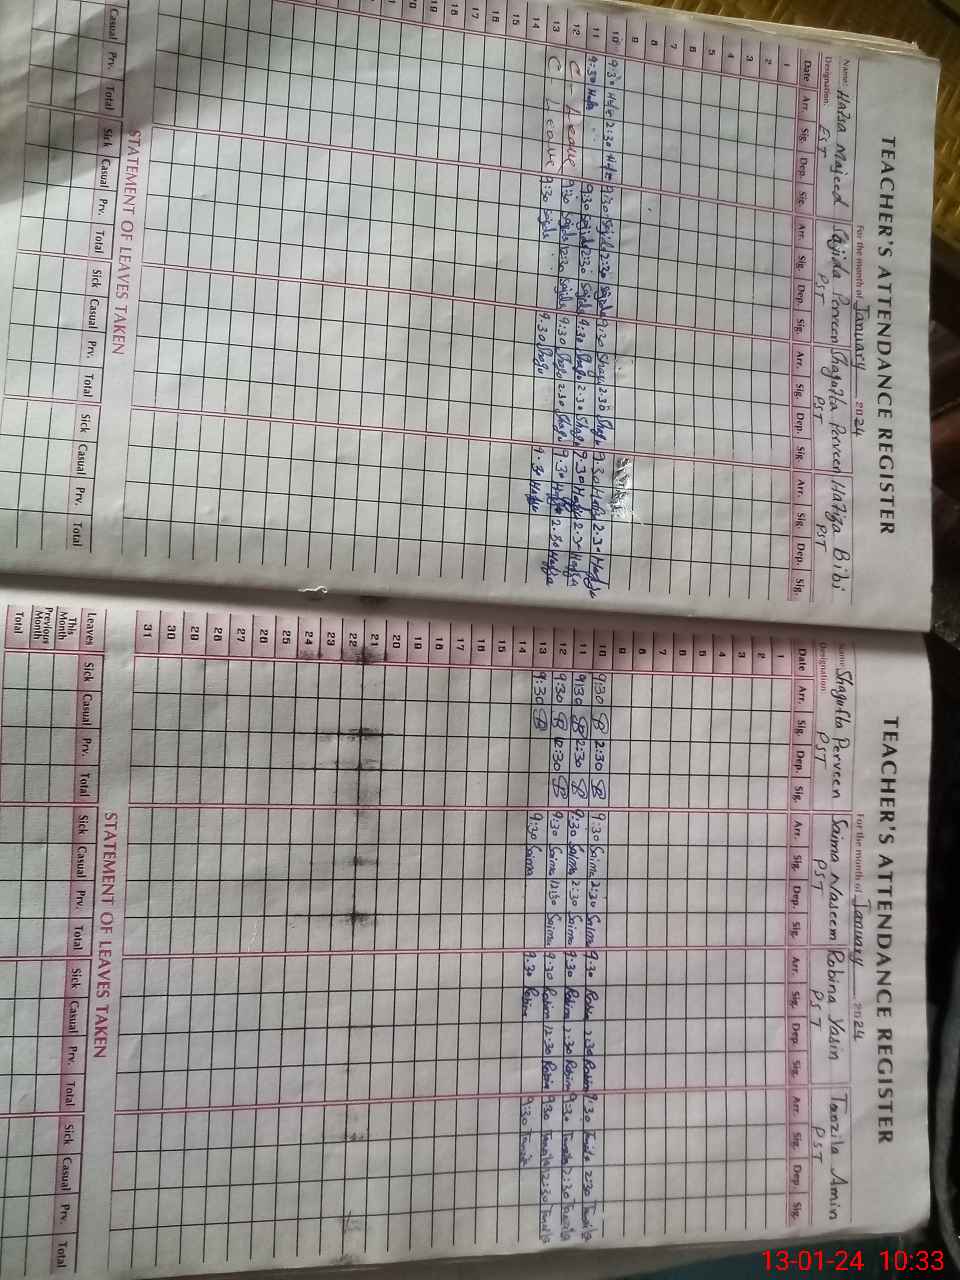 TEACHER'S ATTENDANCE REGISTER
For the month of January 2024
Name: Hafsa Majeed Sajida Perveen Shagufta Perveen Hafiza Bibi
Designation: EST PST PST PST
Date Arr. Sig. Dep. Sig. Arr. Sig. Dep. Sig. Arr. Sig. Dep. Sig. Arr. Sig. Dep. Sig.
1
2
3
4
5
6
7
8
9
10 9:30 2:30 9:30 Sajida 2:30 Sajida 9:30 Shagu 2:30 Shagu 9:30 2:30
11 9:30 9:30 Sajida 2:30 Sajida 9:30 Shagu 2:30 Shagu 9:30 2:30
12 C - Leave 9:30 Sajida 2:30 Sajida 9:30 Shagu 2:30 Shagu 9:30 2:30
13 C Leave 9:30 Sajida 9:30 Shagu 9:30
14
15
16
17
18
19
STATEMENT OF LEAVES TAKEN
Casual Prv. Total Sick Casual Prv. Total Sick Casual Prv. Total Sick Casual Prv. Total
TEACHER'S ATTENDANCE REGISTER
For the month of January 2024
Name: Shagufta Perveen Saima Naseem Robina Yasin Tanzila Amin
Designation: PST PST PST PST
Date Arr. Sig. Dep. Sig. Arr. Sig. Dep. Sig. Arr. Sig. Dep. Sig. Arr. Sig. Dep. Sig.
1
2
3
4
5
6
7
8
9
10 9:30 2:30 9:30 Saima 2:30 Saima 9:30 Robina 2:30 Robina 9:30 Tanzila 2:30 Tanzila
11 9:30 2:30 9:30 Saima 2:30 Saima 9:30 Robina 2:30 Robina 9:30 Tanzila 2:30 Tanzila
12 9:30 12:30 9:30 Saima 12:30 Saima 9:30 Robina 12:30 Robina 9:30 Tanzila 12:30 Tanzila
13 9:30 9:30 Saima 9:30 Robina 9:30 Tanzila
14
15
16
17
18
19
20
21
22
23
24
25
26
27
28
29
30
31
STATEMENT OF LEAVES TAKEN
Leaves Sick Casual Prv. Total Sick Casual Prv. Total Sick Casual Prv. Total Sick Casual Prv. Total
This Month
Previous Month
Total
13-01-24 10:33